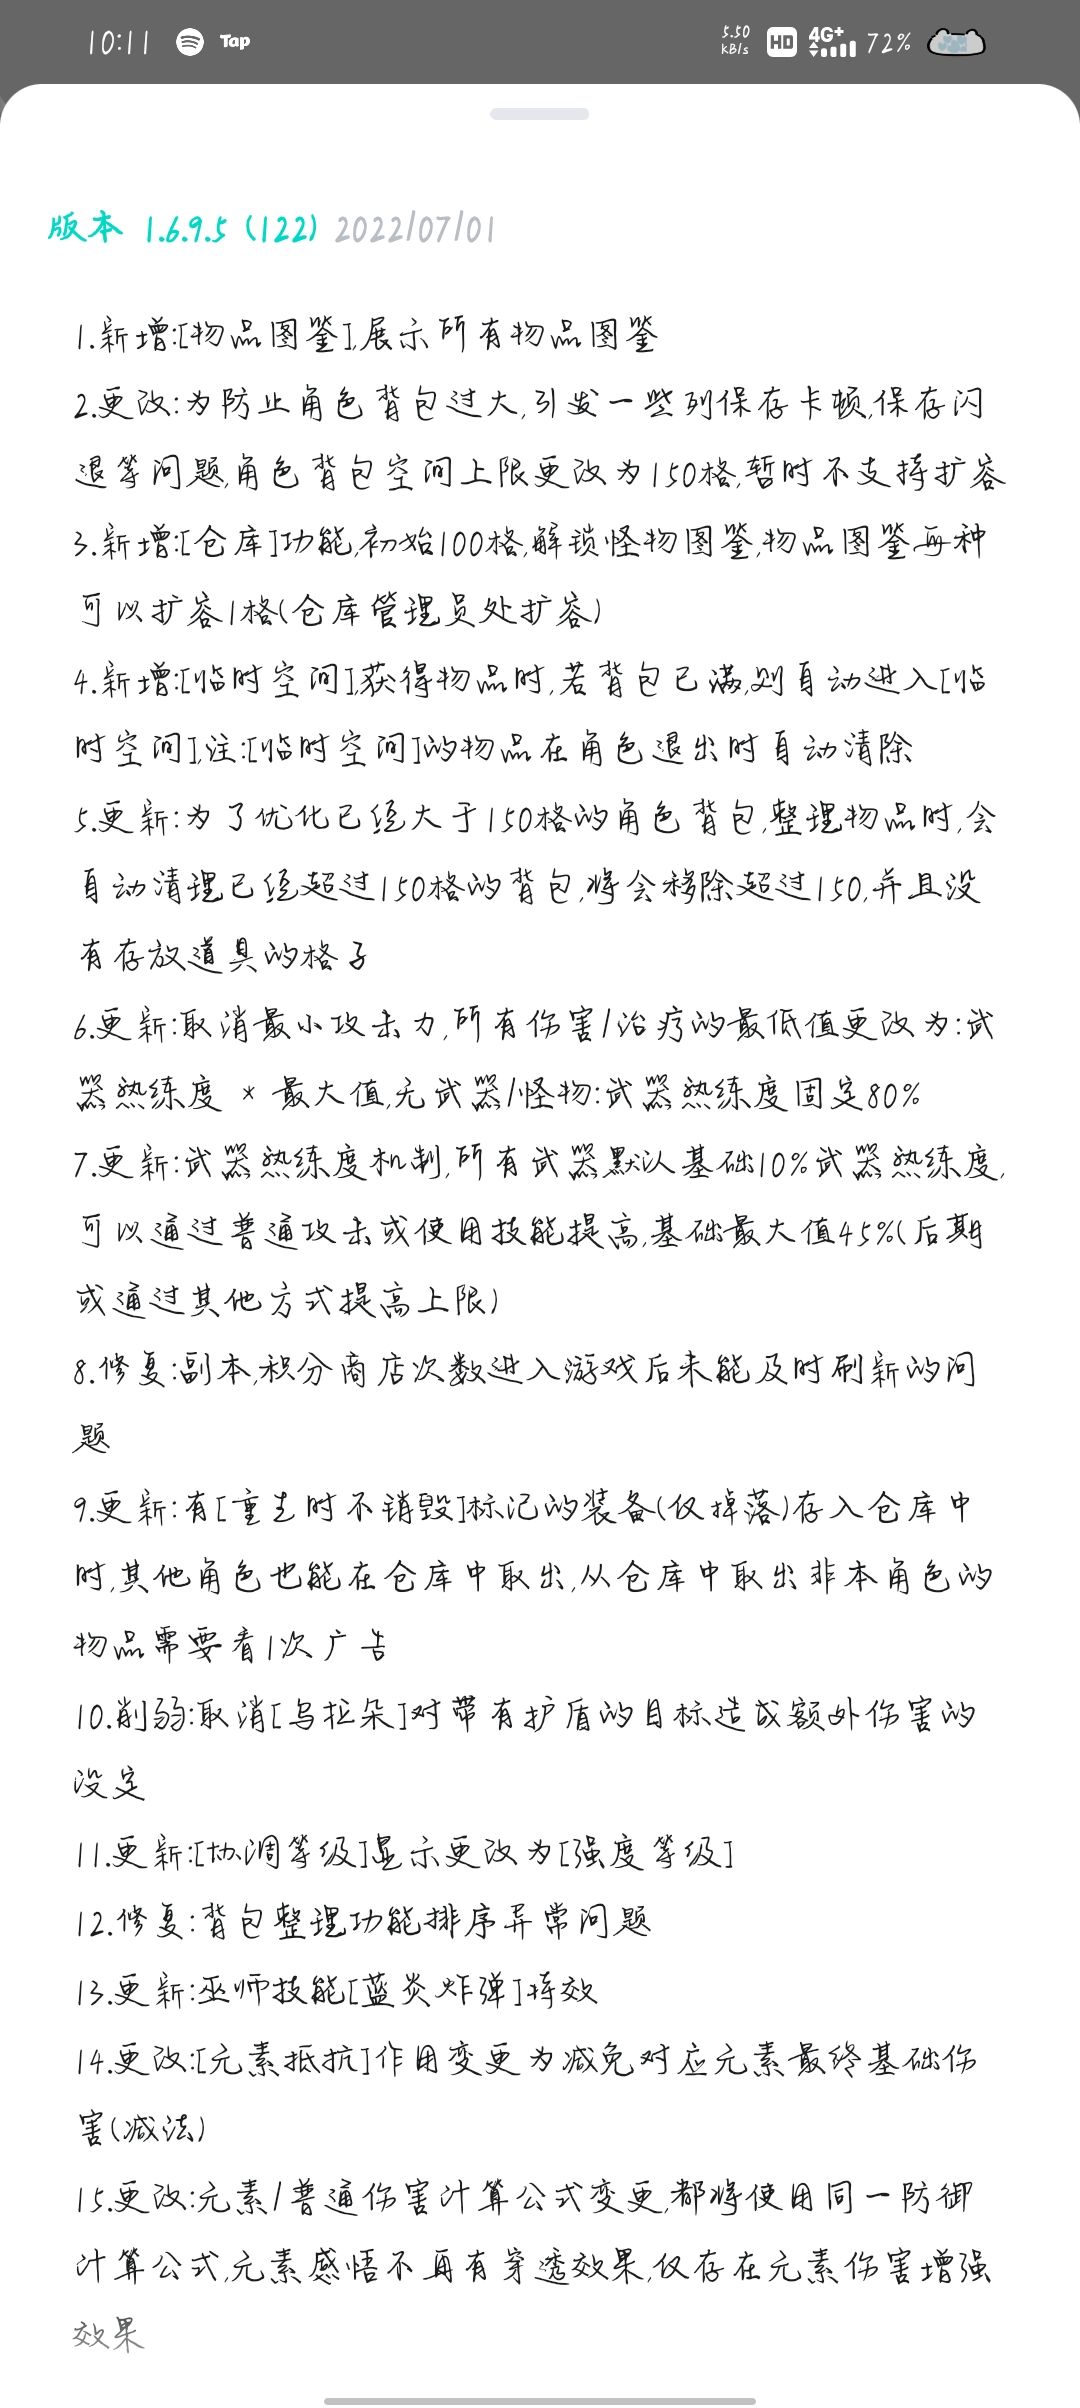 10:11 Tap 5.50 KB/s HD 4G+ 72%
版本 1.6.9.5 (122) 2022/07/01
1.新增:[物品图鉴],展示所有物品图鉴
2.更改:为防止角色背包过大,引发一些列保存卡顿,保存闪
退等问题,角色背包空间上限更改为150格,暂时不支持扩容
3.新增:[仓库]功能,初始100格,解锁怪物图鉴,物品图鉴每种
可以扩容1格(仓库管理员处扩容)
4.新增:[临时空间],获得物品时,若背包已满,则自动进入[临
时空间],注:[临时空间]的物品在角色退出时自动清除
5.更新:为了优化已经大于150格的角色背包,整理物品时,会
自动清理已经超过150格的背包,将会移除超过150,并且没
有存放道具的格子
6.更新:取消最小攻击力,所有伤害/治疗的最低值更改为:武
器熟练度 * 最大值,无武器/怪物:武器熟练度固定80%
7.更新:武器熟练度机制,所有武器默认基础10%武器熟练度,
可以通过普通攻击或使用技能提高,基础最大值45%(后期
或通过其他方式提高上限)
8.修复:副本,积分商店次数进入游戏后未能及时刷新的问
题
9.更新:有[重生时不销毁]标记的装备(仅掉落)存入仓库中
时,其他角色也能在仓库中取出,从仓库中取出非本角色的
物品需要看1次广告
10.削弱:取消[乌拉朵]对带有护盾的目标造成额外伤害的
设定
11.更新:[协调等级]显示更改为[强度等级]
12.修复:背包整理功能排序异常问题
13.更新:巫师技能[蓝炎炸弹]特效
14.更改:[元素抵抗]作用变更为减免对应元素最终基础伤
害(减法)
15.更改:元素/普通伤害计算公式变更,都将使用同一防御
计算公式,元素感悟不再有穿透效果,仅存在元素伤害增强
效果